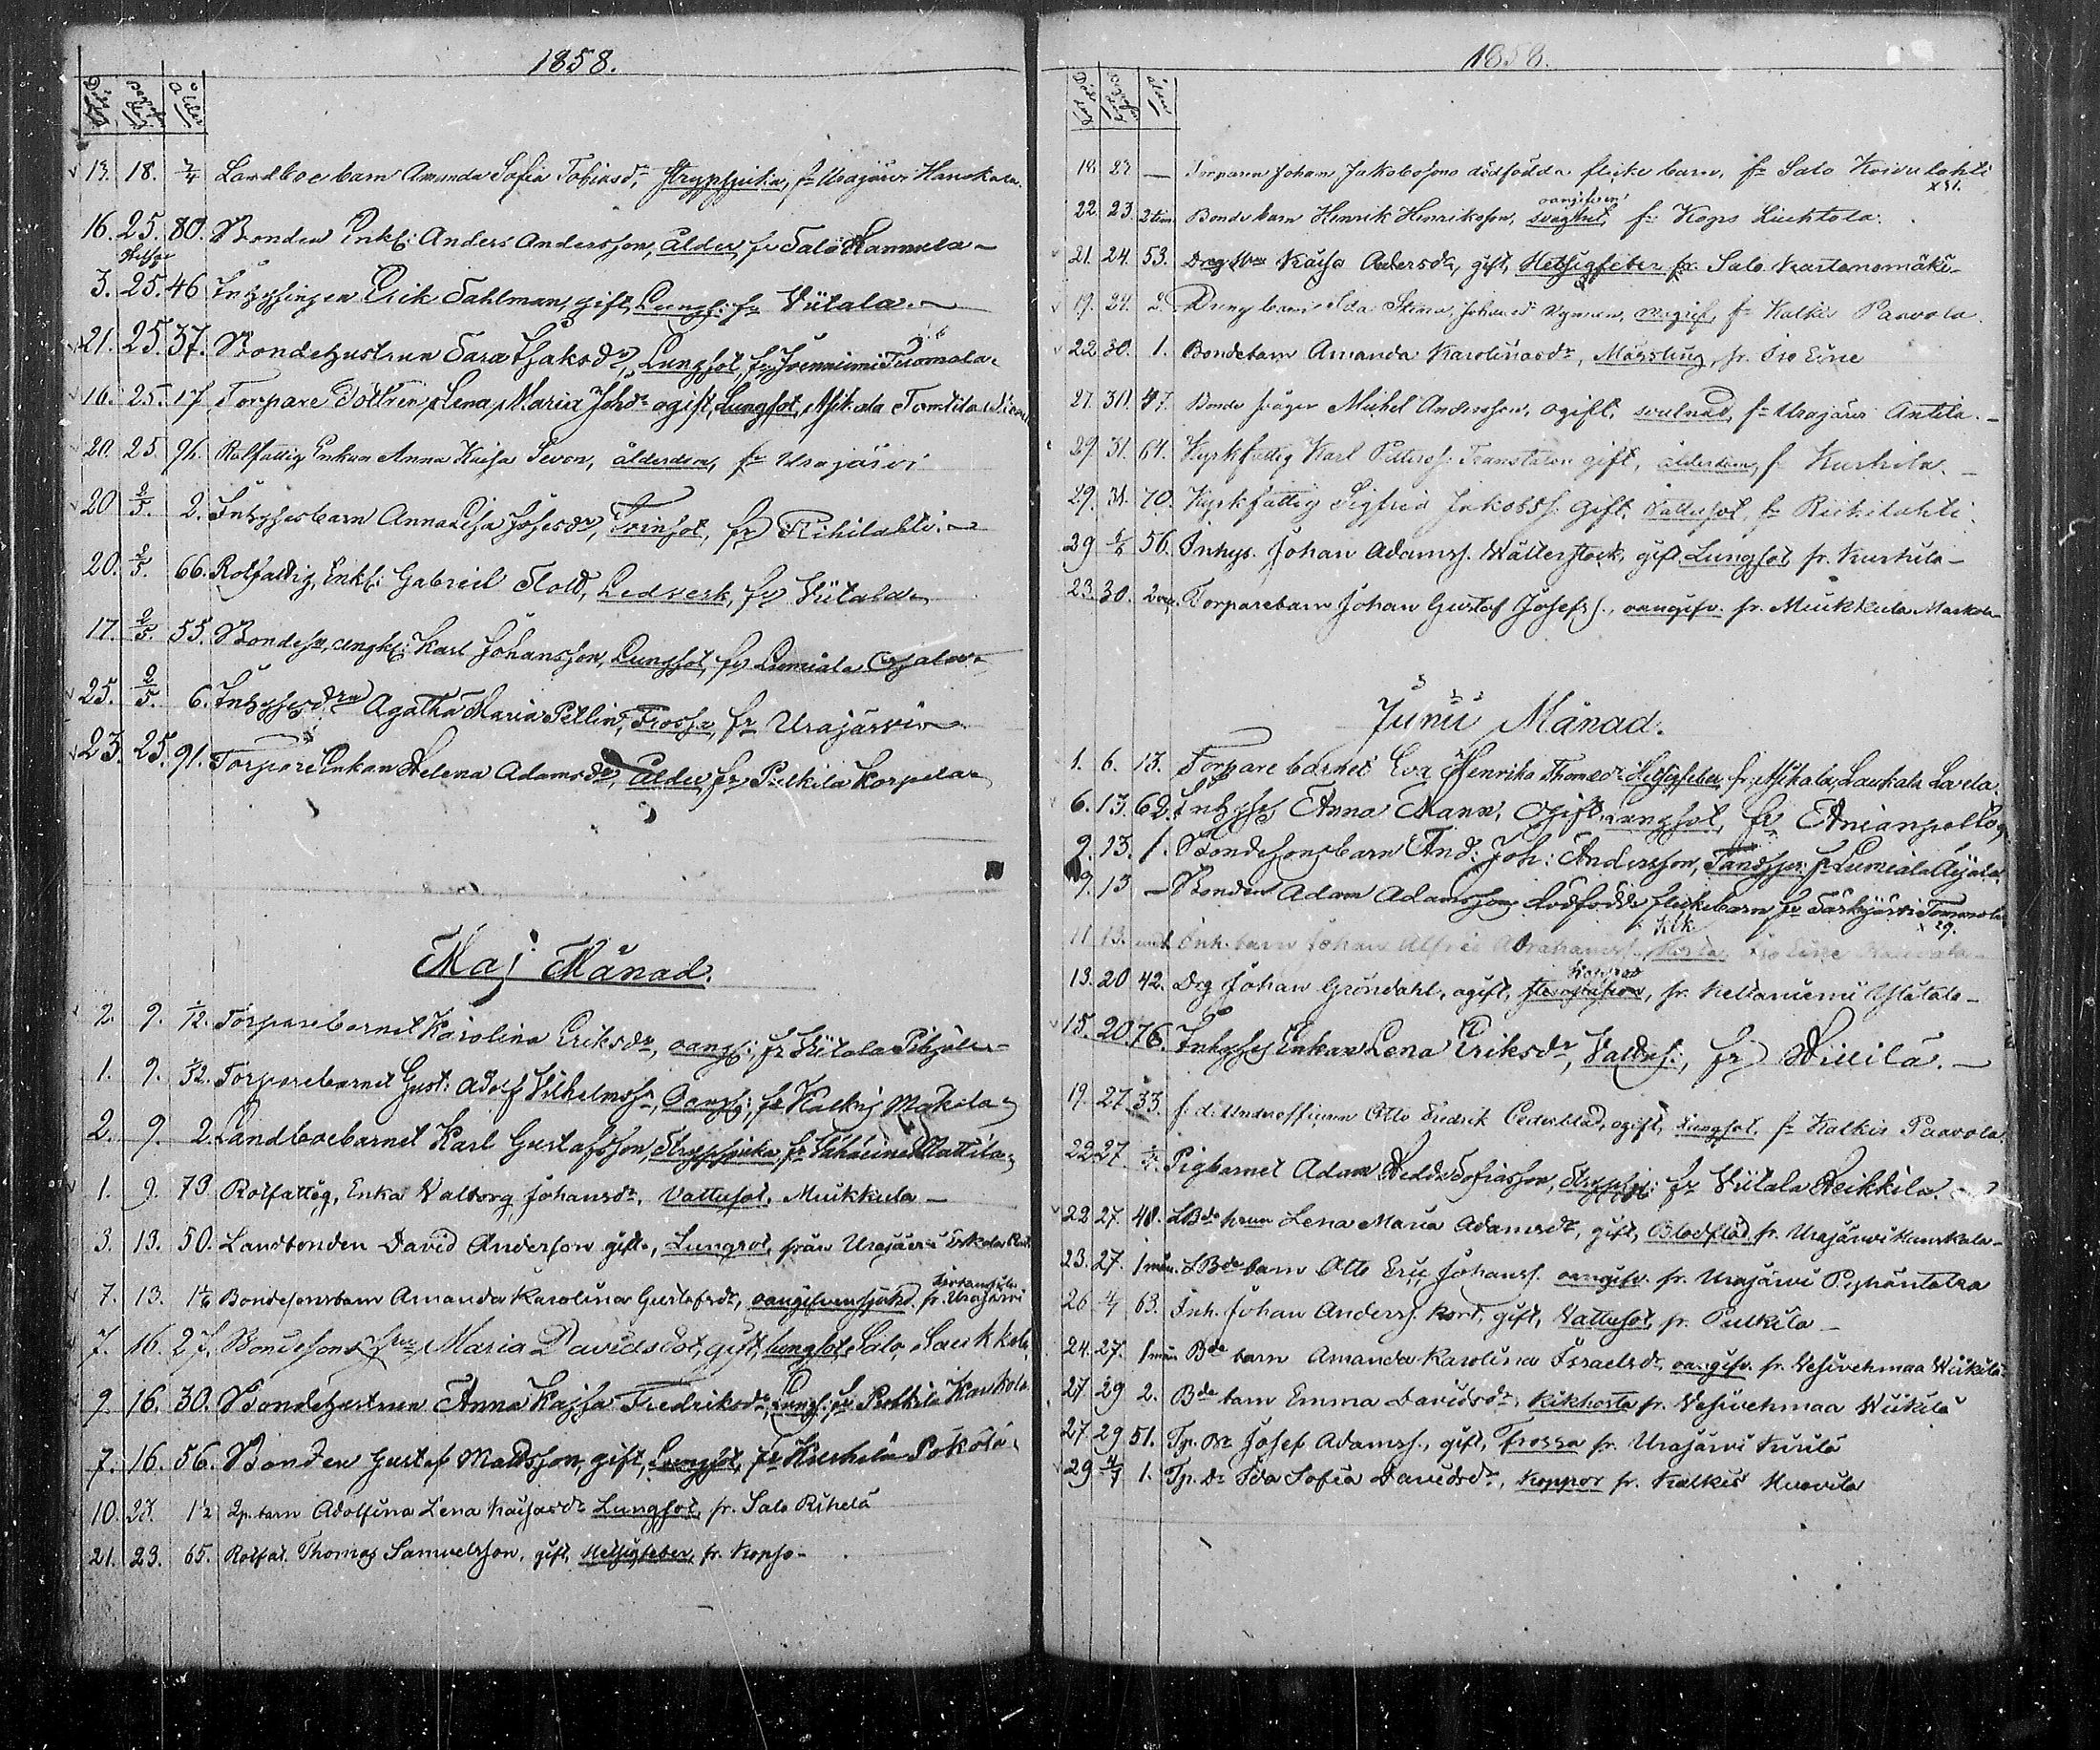 1858.
Död dag Begrafn dag Ålder
13. 18. 3/4 Landboe barn Amanda Sofia Tobiasdr, Strypsjuka, fr Urajärvi Hanskala.
16. 25. 80. Bonden Enkl: Anders Andersson, ålder, fr Salo Hannula
3. 25. 46 Inhysingen Erik Sahlman, gift, Lungs: fr Viitala.
21. 25. 37. Bondehustrun Sara Isaksdr, Lungsot, fr Joenniemi Tuomola
16. 25. 17 Torpare Dottren Lena Maria Johdr ogift, Lungsot, Mskala Tomtila
20. 25. 96. Rotfattig Enkan Anna Kaisa Sevon, ålderdom, fr Urajärvi
20 2/5. 2. Inhysesbarn Anna Lisa Josefsdr, Tvinsot, fr Rihilahti.
20. 2/5. 66. Rotfattig, Enkl: Gabriel Flold, Ledverk, fr Viitala
17. 2/5. 55. Bondeson, ungkl: Karl Johansson, Lungsot, fr Lumiala Ojala
25. 2/5. 6. Inhyses dr Agatha Maria Pellin, Frossa, fr Urajärvi
23. 25. 91. Torpare Enkan Helena Adamsdr, Ålder, fr Pulkila Korpela
Maj Månad.
2. 9. 1/12. Torparebarnet Karolina Eriksdr, oangf:, fr Viitala Pihjala
1. 9. 3/12. Torparebarnet Gust: Adolf Vilhelmss, Oangf:, fr Kalkis Mäkilä
2. 9. 2. Landboebarnet Karl Gustafsson, Strypsjuka, fr Vähäeine Mattila
1. 9. 73 Rotfattig, Enka Valborg Johansdr, Vattusot, Muikkula
3. 13. 50. Landbonden David Anderson gift, Lungsot, från Urajärvi
7. 13. 1 1/6 Bondesonsbarn Amanda Karolina Gustafsdr, oangifven sjukd. fr. Urajärvi
7. 16. 27. Bondesons hru Maria Davidsdot, gift, lungsot, Salo Laukkala
9. 16. 30. Bondehustrun Anna Kajsa Fredriksdr, Lungs: fr Pulkila Kaukola
7. 16. 56. Bonden Gustaf Mattsson, gift, Lungsot, fr Kurhila Pokola
10. 23. 1 1/2 Qp. barn Adolfina Lena Kaisasdr Lungsot, fr. Salo Rihelä
21. 23. 65. Rotfat. Thomas Samuelsson, gift, Hetsigfeber, fr. Kopso
1858.
Död dag Begrafn dag ålder
18. 23 — Torparen Johan Jakobssons dödfödda flicke barn, fr Salo Koivulahti
x 31.
oangifven
22. 23. 2 tim Bonde barn Henrik Henriksson, svaghet, fr Kops Liehtola.
21. 24. 53. Dreg Hru Kaisa Andersdr, gift, Hetsigfeber fr. Salo Kartanomäki
19. 24. 2. Dreng barn Ida Stina Johansdr Nyman, oangif, fr Kalkis Paavola
22 30. 1. Bondebarn Amanda Karolinasdr, Mässling, fr. Iso Eine
27. 30. 47. Bonde svåger Michel Andersson, ogift, svulnad, fr Urajärvi Antila.
29. 31. 64. Kyrkfattig Karl Pettersf. Transtalon gift, ålderdom, fr Kurhila.
29. 31. 70. Kyrkfattig Sigfrid Jakobsf. gift, Vattusot, fr Riihilahti.
29 6/6 56. Inhys. Johan Adamsf. Wätterstock, gift Lungsot, fr. Kurhila
23. 30. 2 vec. Torparebarn Johan Gustaf Josefsf., oangifv. fr. Muikkula Markola
Junii Månad.
1. 6. 13. Torpare barnet Eva Henrika Thomasdr Hetsigfeber, fr Mskala, Laukala Lavila.
6. 13. 62. Inhyses Anna Mann, Ogift, Lungsot, fr Anianpelto
9. 13. 1. Bondesonsbarn And: Joh: Andersson, Tandspr: fr Lumiala Äijälä
9. 13 — Bonden Adam Adamssons dödfödda flickebarn fr Särkijärvi Tommola
x 29.
Kik
11 13. Inh. barn Johan Alfred Abrahamsf. Hosta, Iso Eine
13. 20 42. Drg Johan Gröndahl, ogift, fr. Keltaniemi Ylätalo
15. 20. 76. Inhyses Enkan Lena Eriksdr, Vattus:, fr Viitilä.
19. 27. 33. f.d. Underofficeren Otto Fredrik Cederblad, ogift, Lungsot, fr Kalkis Paavola.
22. 27 Pigbarnet Adam Hedda Sofiasson, Strypsj: fr Viitala Heikkilä.
22 27. 48. LBde hrun Lena Maria Adamsdr, gift, Blodflöd fr. Urajärvi Hanskala
23. 27. 1 mån. LBde barn Otto Eric Johansf. oangifv. fr. Urajärvi Pyhäntalka
26 4/7 63. Inh. Johan Andersf. Kort, gift, Vattusot, fr. Pulkila
24. 27. 1 mån Bde barn Amanda Karolina Israelsdr, oangifv. fr. Vesivehmaa Wiikilä
27 29 2. Bde barn Emma Davidsdr, Kikhosta fr. Vesivehmaa Wiikilä
27 29 51. Tp. Br. Josef Adamsf., gift, Frossa fr. Urajärvi Suiila
29 4/7 1. Tp. Dr Ida Sofia Davidsdr, Koppor fr. Kalkis Huovila